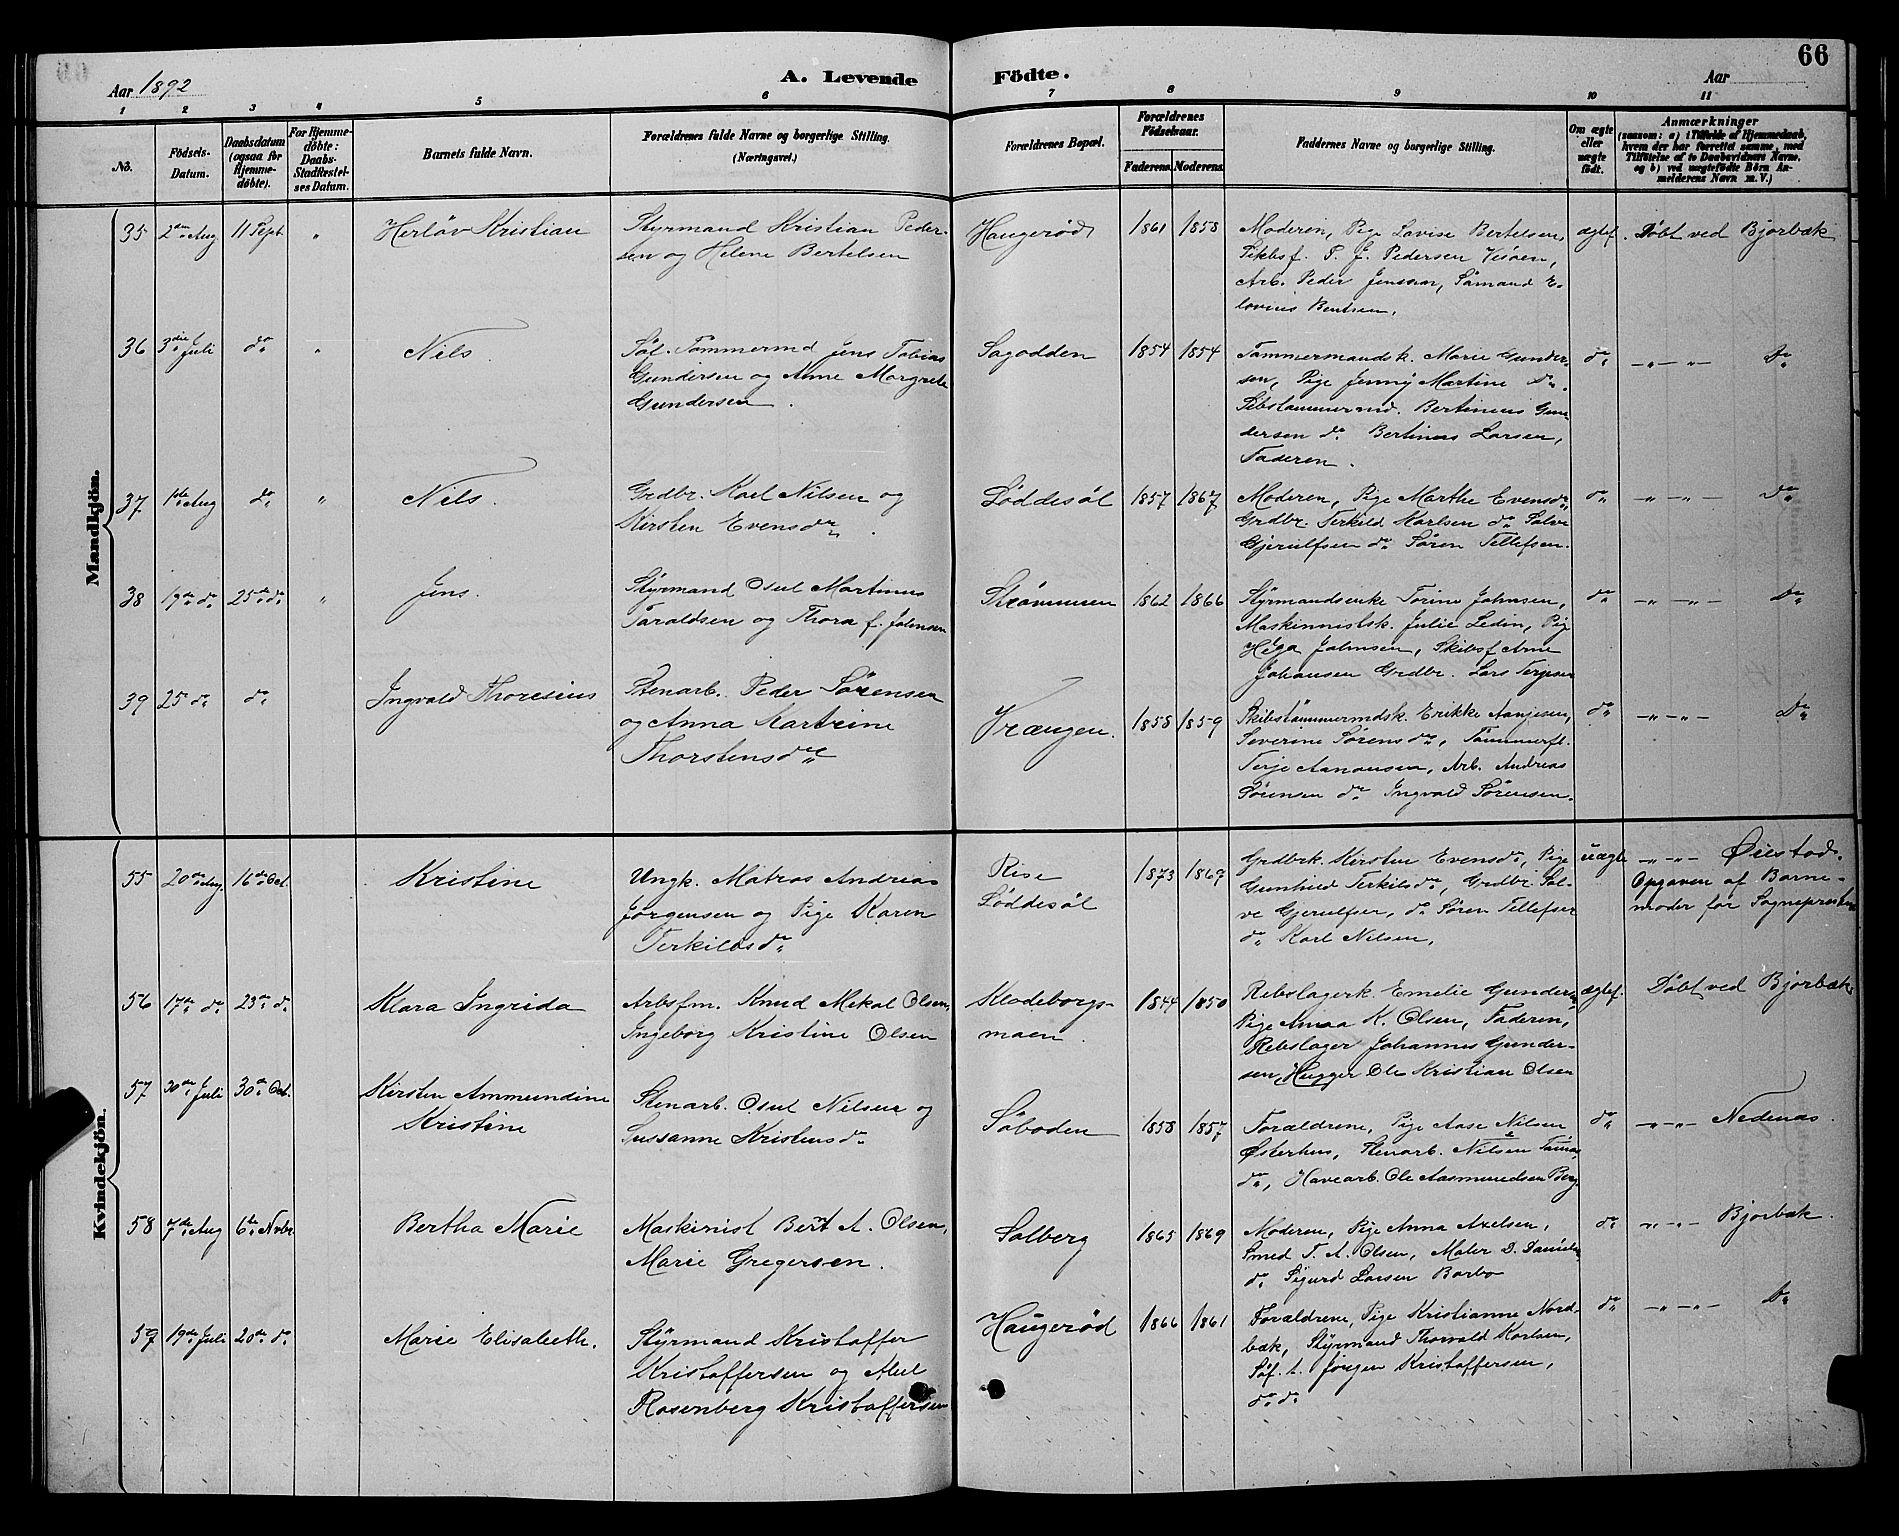 66
Aar 1892
A. Levende Födte.
Aar
1 2 3 4 5 6 7 8 9 10 11
No.
Födsels-Datum.
Daabsdatum (ogsaa för Hjemme-döbte).
For Hjemme-döbte: Daabs-Stadfæstel-ses Datum.
Barnets fulde Navn.
Forældrenes fulde Navne og borgerlige Stilling. (Næringsvei.)
Forældrenes Bopæl.
Forældrenes Födselsaar.
Faderens. Moderens.
Faddernes Navne og borgerlige Stilling.
Om ægte eller uægte födt.
Anmærkninger
(saasom: a) i Tilfælde af Hjemmedaab,
hvem der har forrettet samme, med
Tilföielse af to Daabsvidners Navne,
og b) ved uægtefödte Börn An-
melderens Navn m. V.)
Mandkjön.
35 2den Aug 11 Sept. " Herlöv Kristian
Styrmand Kristian Peder-
sen og Helene Bertelsen
Haugeröd 1861 1858
Moderen, Pige Lovise Bertelsen,
Skibsf. P. J. Pedersen Vesöen,
Arb. Peder Jensen, Sömand E-
lovius Bentsen.
ægtef. Döbt ved Bjorbæk
36 3die Juli do " Nels.
Söf. Tömmermd Jens Tobias
Gundersen og Anne Margrete
Gundersen.
Sagodden 1854 1854
Tømmermandsk. Marie Gunder-
sen, Pige Jenny Martine do.
Skibstømmermd. Bertinius Gun-
dersen do. Bertinus Larsen,
Faderen.
do — " — " — Do
37 1de Aug do " Nels.
Grdbr. Karl Nilsen og
Kirsten Evensdr.
Löddesöl 1857 1867
Moderen, Pige Marthe Evensdr,
Grdbr. Terkild Karlsen do Salve
Gjerulfsen do. Sören Tellefsen.
do — " — " — Do
38 19de do. 25de do. " Jens.
Styrmand Osul Martinus
Taraldsen og Thora f. Johnsen
Strömmen 1862 1866
Styrmandsenke Torine Johnsen,
Maskinnistsk. Julie Leden, Pig
Hega Johnsen, Skibsf Arne
Johansen Grdbr. Lars Terjesen
do — " — " — Do
39 25 do do. Ingvald Thoresius
Stenarb. Peder Sörensen
og Anna Katrine
Thorstensdr
Vrængen. 1858 1859
Skibstömmermdsk. Erikke Aanjesen,
Severine Sörensdr, Tömmerfl.
Terje Aanonsen, Arb. Andreas
Sörensen do. Ingvald Sörensen.
do — " — " — Do
Kvindekjön.
55 20de Aug. 16de Oct. Kristine
Ungk. Matros Andreas
Jörgensen og Pige Karen
Terkildsdr.
Rise
Löddesöl
1873 1869
Grdbrk. Kirsten Evensdr, Pige
Gunhild Terkilsdr, Grdbr. Sal-
ve Gjerulfsen, do Sören Tellefsen
do. Karl Nilsen,
uægte — " — " — Øiestad.
Opgaven af Barne-
moder før Sognepresten
56 17de do. 23de do. Klara Ingrida
Arbsfm. Knud Mekal Olsen,
Ingeborg Kristine Olsen
Klodeborgs-
moen
1844 1850
Rebslagerk. Emelie Gundersen
Pige Anna K. Olsen, Faderen,
Rebslager Johannes Gunder-
sen, Hugger Ole Kristian Olsen
ægtef. Döbt ved Bjorbæk
57 30de Juli 30de Oct. Kirsten Ammundine
Kristine
Stenarb. Osul Nilsen og
Sussanne Kristensdr.
Söboden 1858 1857
Forældrene, Pige Aase Nilsen
Østerhus, Stenarb. Nilsen
do, Havearb. Ole Aasmundsen Berg
do — " — " — Nedenæs.
58 7de Aug 6te Novbr Bertha Marie
Maskinist Bernt A. Olsen,
Marie Gregersen.
Solberg 1865 1869
Moderen, Pige Anna Axelsen,
Smed T. A. Olsen, Maler D. Danielsen
do. Sigurd Larsen Barbo
do " — " — Bjorbæk.
59 19de Juli 20de do. Marie Elisabeth.
Styrmand Kristoffer
Kristoffersen og
Rosenberg Kristoffersen
Haugeröd 1866 1861
Forældrene, Pige Kristianne Nord-
bæk, Styrmand Thorvald Karlsen,
Söf. t. Jörgen Kristoffersen,
do. do.
do — " — " — Do